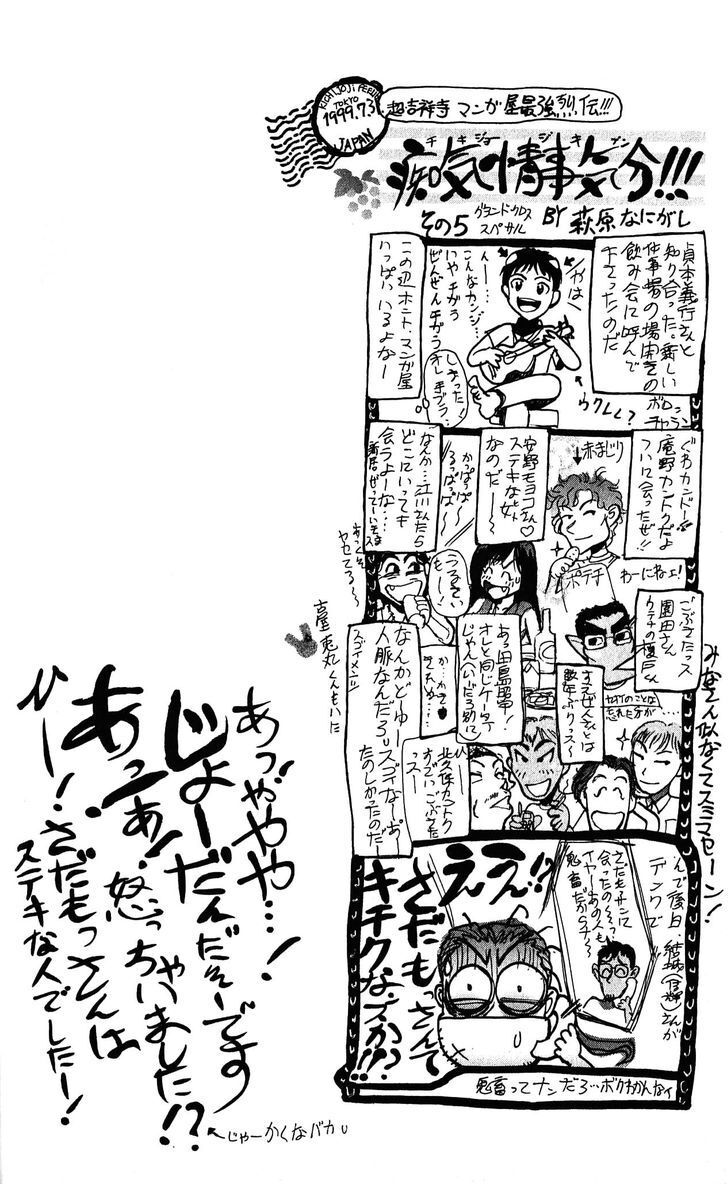 KICHIJOJI
TOKYO
1999.7.31
JAPAN
超吉祥寺 マンガ屋最強烈伝!!!
チキジョージキブン
痴気情事気分!!!
その5
グランドクロス
スペサル
BY 萩原なにがし
貞本義行さんと
知り合った。新しい
仕事場の場開きの
飲み会に呼んで
下さったのだ
ボロン
チャラン
やは
ウクレレ?
んー…
こんなカンジ…
いや チガう
ぜんぜんチガう
オレ 手ブラ
しまった
この辺ホント、マンガ屋
いっぱいいるよなー
ぐわカンドー
庵野カンドクだよ
ついに会ったぜ!!
赤まじり
ポテチ
わーにねょ!
安野モヨコさん♡
ステキな女
なのだー
かぱっぱ
るっぱっぱー
うるせい
もー
なんか…江川さんたら
どこにいっても
会うよーな…
あっくそ
ヤセてるー
ごぶさたっス
園田さん
みなさん似なくてスミマセーン!
忘れた方が…
すえぜん くんとは
数年ぶりっス〜
あっ田島昭宇!
オレと同じケータイ
じゃん(いいだろ別に
か…かて
きれぬ…
北久保カントク
すごいごぶさた
っスー
なんかどーゆー
人脈なんだろう
スゴイなーあー
たのしかったのだー
スゴイメンツ
古屋兎丸くんもいた
んで後日、結城(信輝)さんが
デンワで
さだもサンに
会ったの〜っ?
イヤーあの人も
鬼畜だからナ〜
ええ!?
さだもっさんて
キチクなスか!!?
鬼畜ってナンだろ…ボクわかんなィ
あっややや…!
じょーだんだそーです
あっあ!怒っちゃいました!?
ひー!さだもっさんは
ステキな人でしたー!
←じゃーかくなバカ